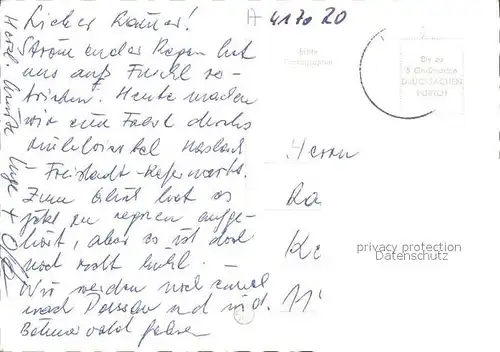 Lieber Rainer!
Strömender Regen hat
uns aufs
Heute machen
wir eine Fahrt durchs
Mühlviertel Haslach
– Freistadt – Kefermarkt.
Zum Glück hat es
jetzt zu regnen aufge-
hört, aber es ist doch
noch recht kühl. –
Wir werden noch einmal
nach Passau und
Böhmerwald fahren
Herzl. Grüße Inge +
A 4170 20
Echte
Photographie
Bis zu
5 Grußworte
DRUCKSACHEN
PORTO!
Herrn
Ra
privacy protection
Datenschutz